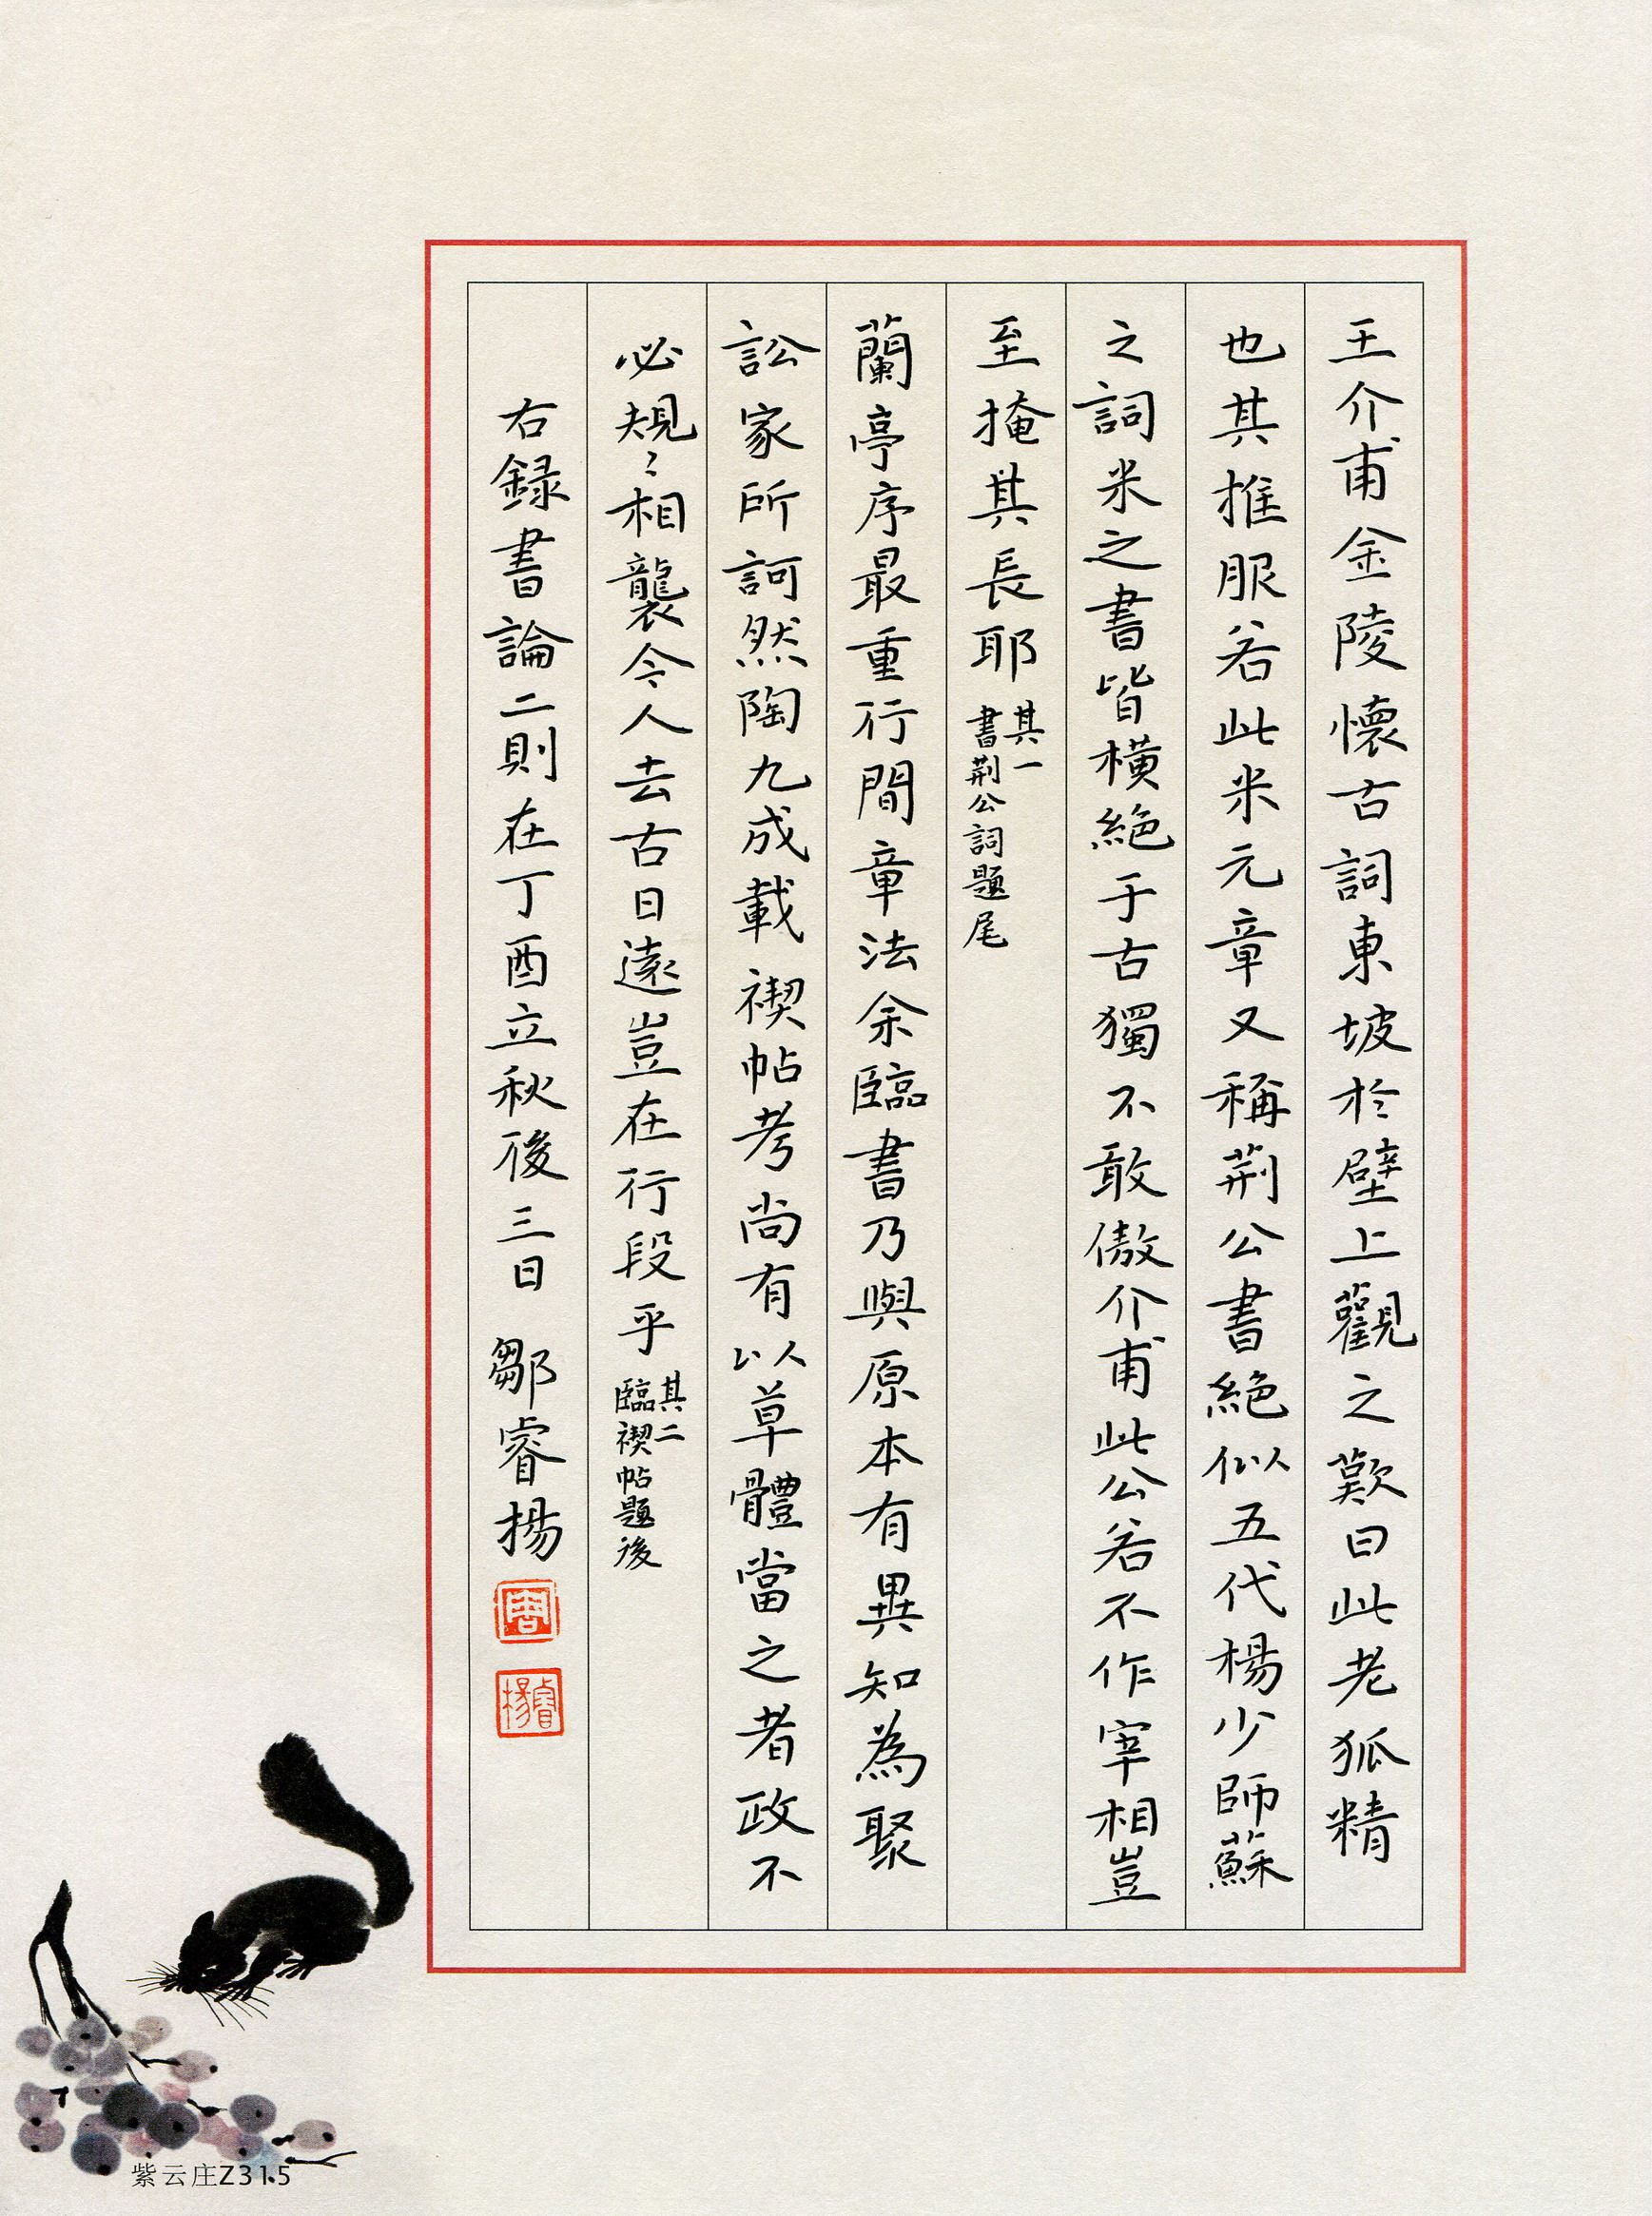 王介甫金陵懷古詞東坡於壁上觀之歎曰此老狐精
也其推服若此米元章又稱荆公書絕似五代楊少師蘇
之詞米之書皆橫絕于古獨不敢傲介甫此公若不作宰相豈
至掩其長耶 其一
書荆公詞題尾
蘭亭序最重行間章法余臨書乃與原本有異知為聚
訟家所訶然陶九成載禊帖考尚有以草體當之者政不
必規〻相襲今人去古日遠豈在行段乎 其二
臨禊帖題後
右録書論二則在丁酉立秋後三日 鄒睿揚
睿揚
紫云庄Z31.5